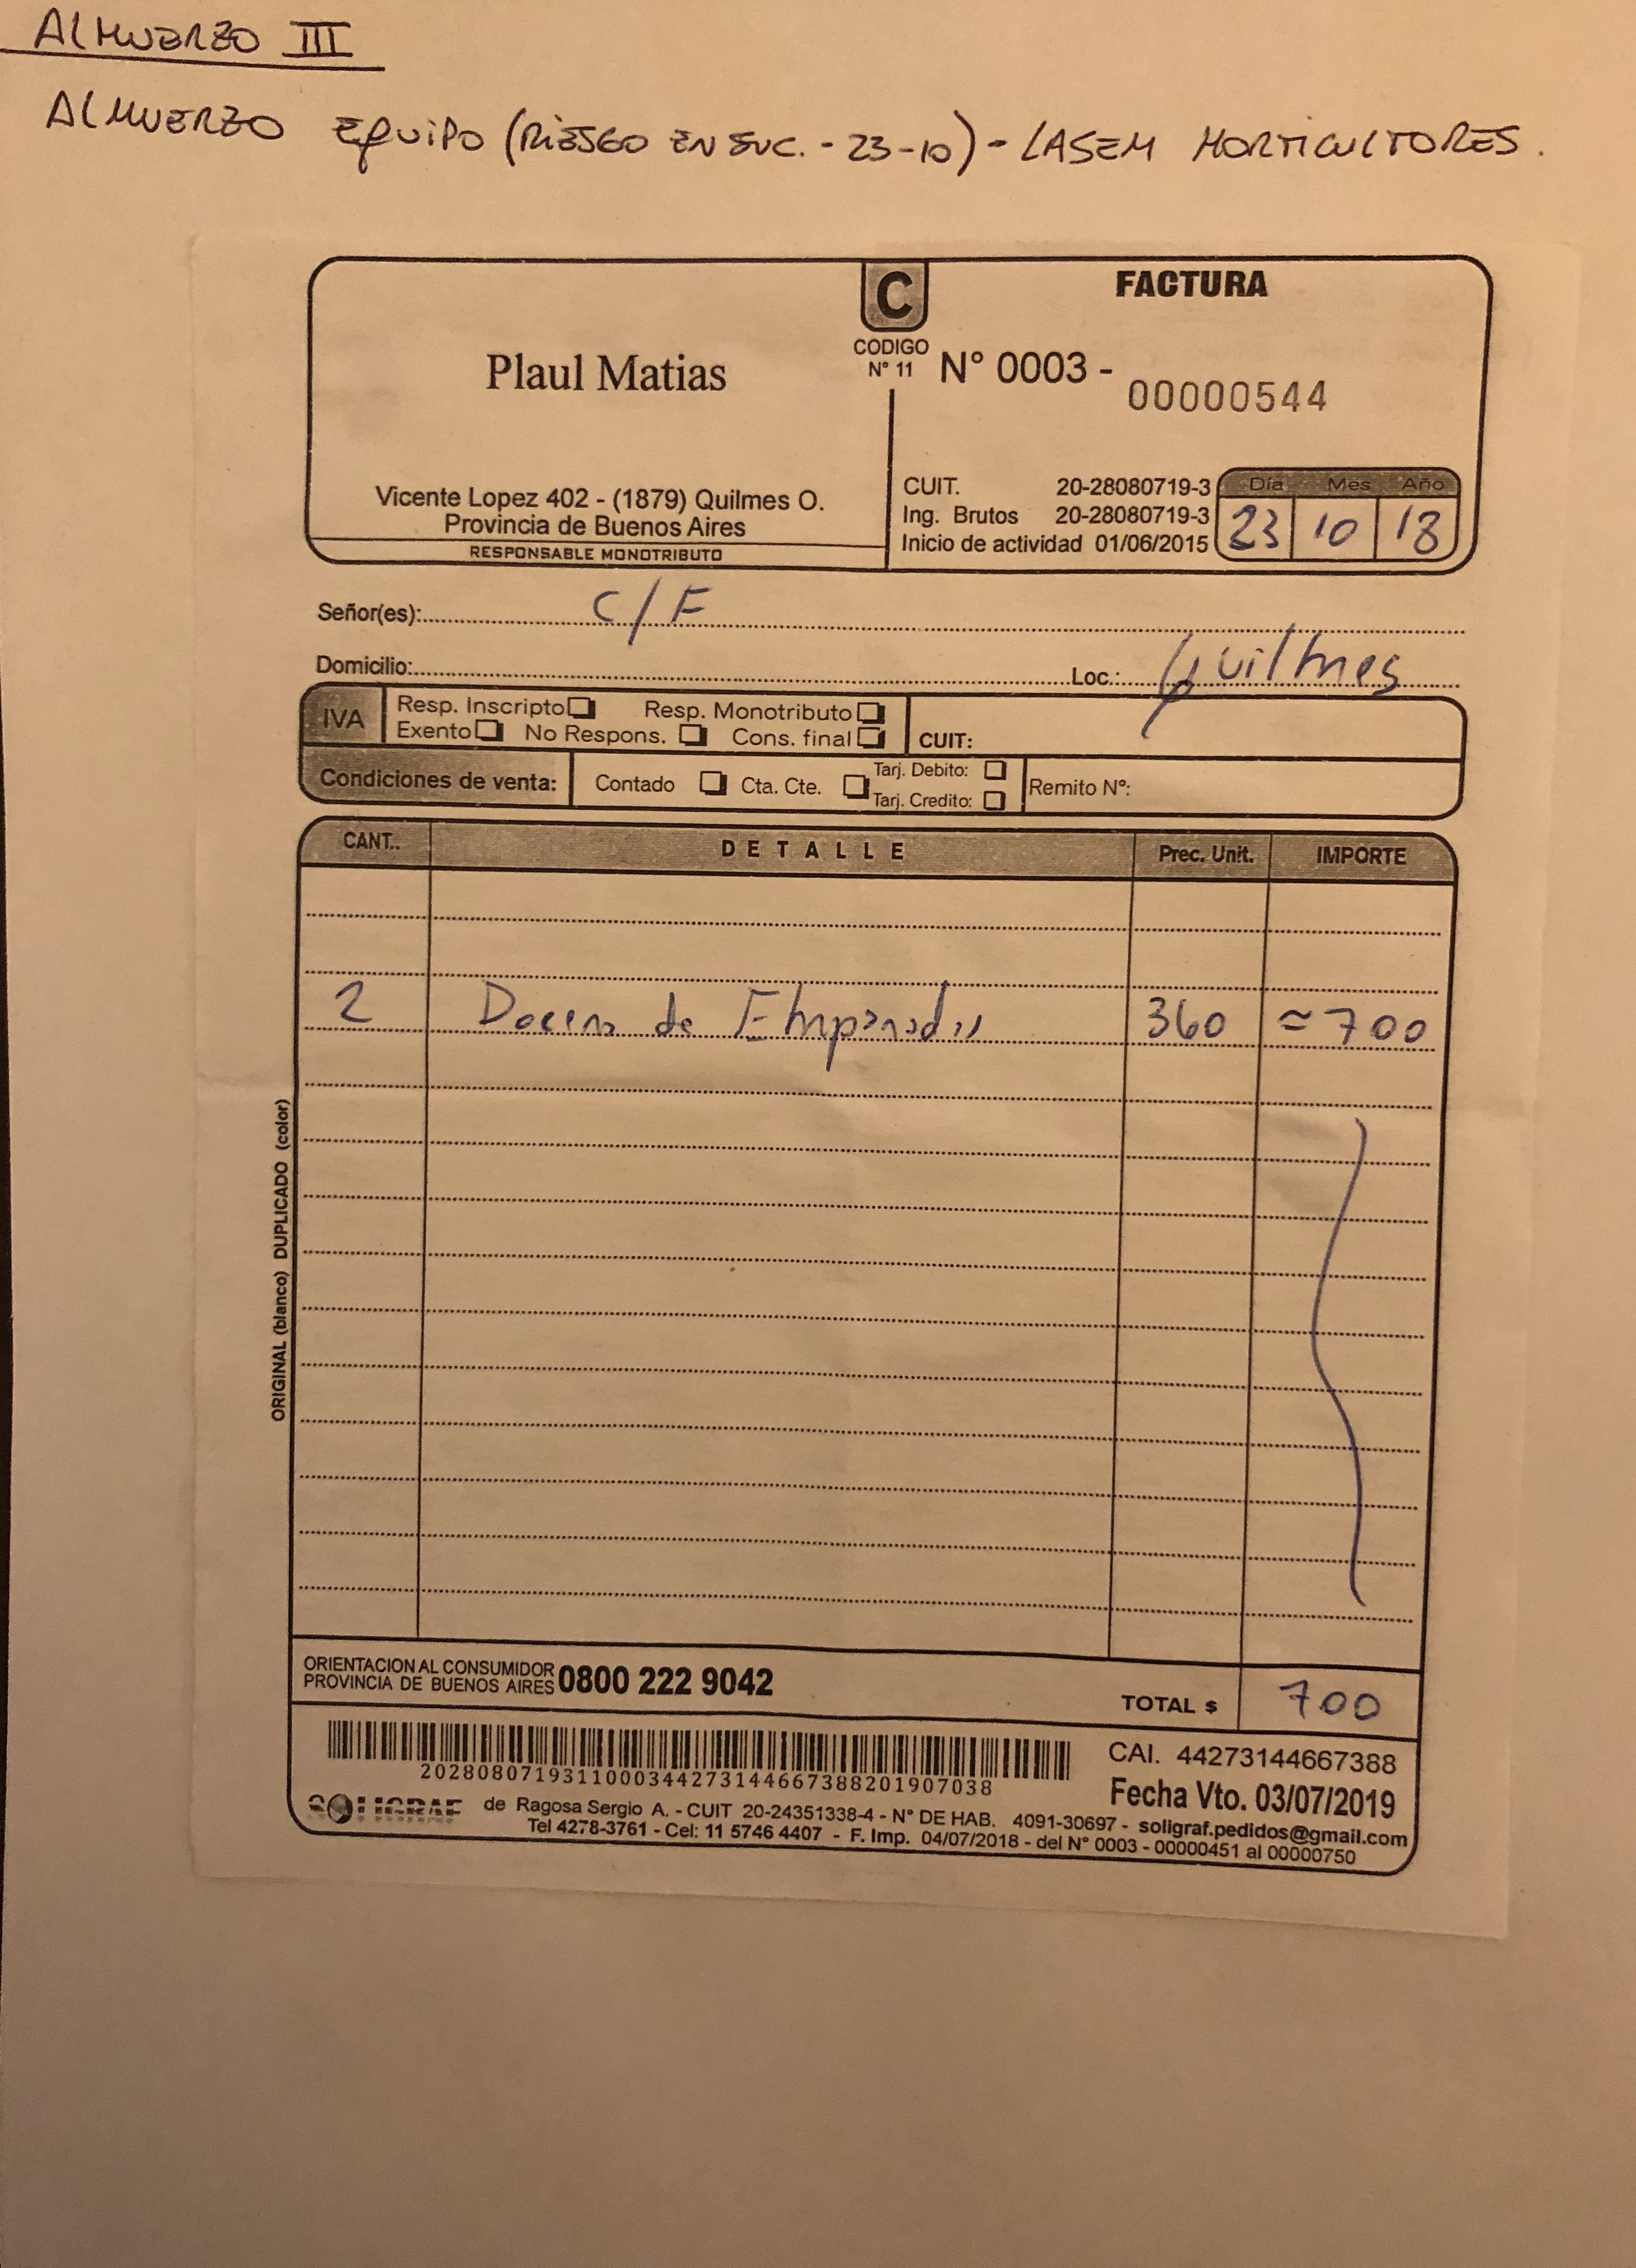 ALMUERZO III
ALMUERZO EQUIPO (RIESGO EN SUC. - 23-10) - LASEM HORTICULTORES.
C
CODIGO
N° 11
FACTURA
Plaul Matias
N° 0003 - 00000544
Vicente Lopez 402 - (1879) Quilmes O.
Provincia de Buenos Aires
RESPONSABLE MONOTRIBUTO
CUIT. 20-28080719-3
Ing. Brutos 20-28080719-3
Inicio de actividad 01/06/2015
Día Mes Año
23 10 18
Señor(es): C/F
Domicilio: Loc.: Quilmes
IVA Resp. Inscripto Resp. Monotributo
Exento No Respons. Cons. final CUIT:
Condiciones de venta: Contado Cta. Cte. Tarj. Debito:
Tarj. Credito: Remito N°:
CANT.. DETALLE Prec. Unit. IMPORTE
2 Docena de Empanadas 360 ≈ 700
ORIGINAL (blanco) DUPLICADO (color)
ORIENTACION AL CONSUMIDOR
PROVINCIA DE BUENOS AIRES 0800 222 9042
TOTAL $ 700
2028080719311000344273144667388201907038
CAI. 44273144667388
Fecha Vto. 03/07/2019
SOLIGRAF de Ragosa Sergio A. - CUIT 20-24351338-4 - N° DE HAB. 4091-30697 - soligraf.pedidos@gmail.com
Tel 4278-3761 - Cel: 11 5746 4407 - F. Imp. 04/07/2018 - del N° 0003 - 00000451 al 00000750